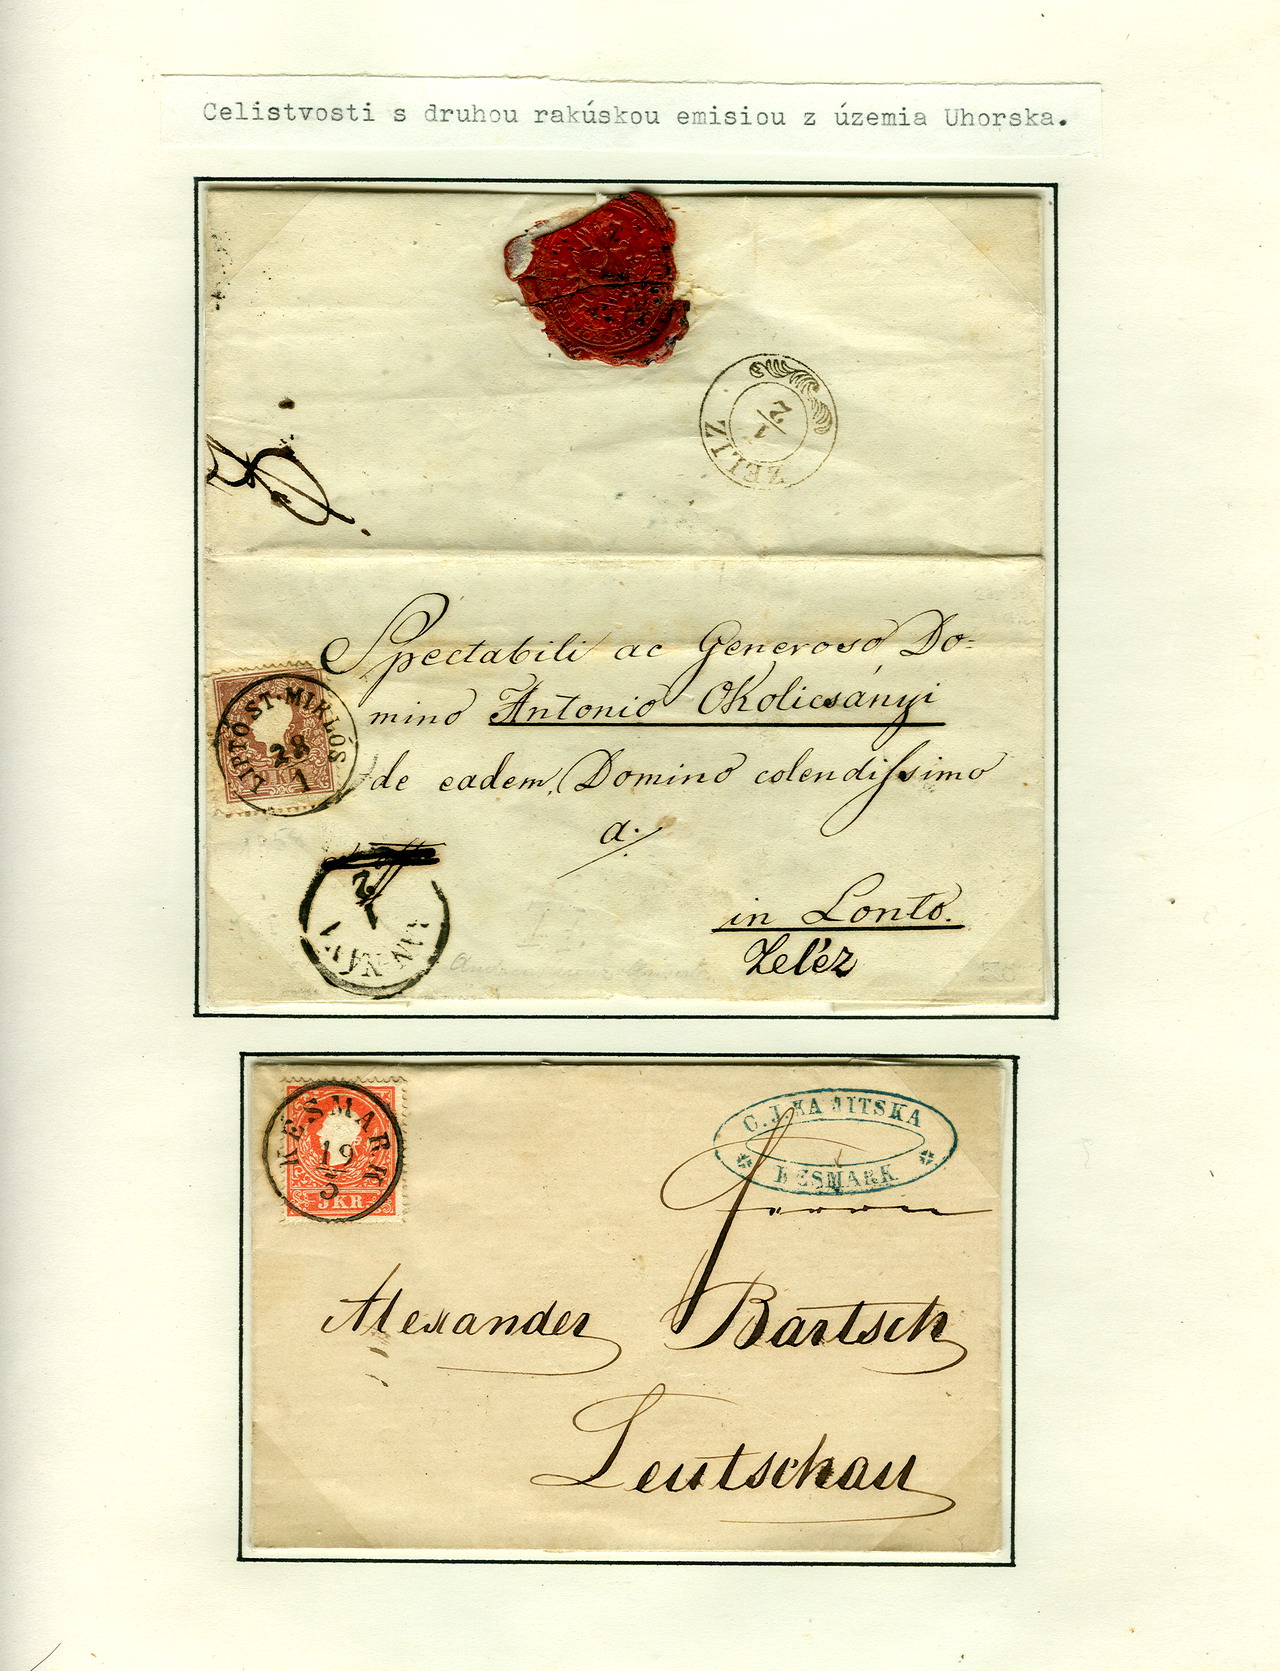 Celistvosti s druhou rakúskou emisiou z územia Uhorska.
ZELIZ
2/1
Spectabili ac Generoso Do=
mino Antonio Okolicsányi
de eadem, Domino colendissimo
a:/
in Lonto.
Zeléz
LIPTÓ ST. MIKLÓS
28
1
KR
2
1
KESMARK
19
3
5KR
C.J.
ITSKA
KESMARK
Herrn
Alexander Bartsch
Leutschau